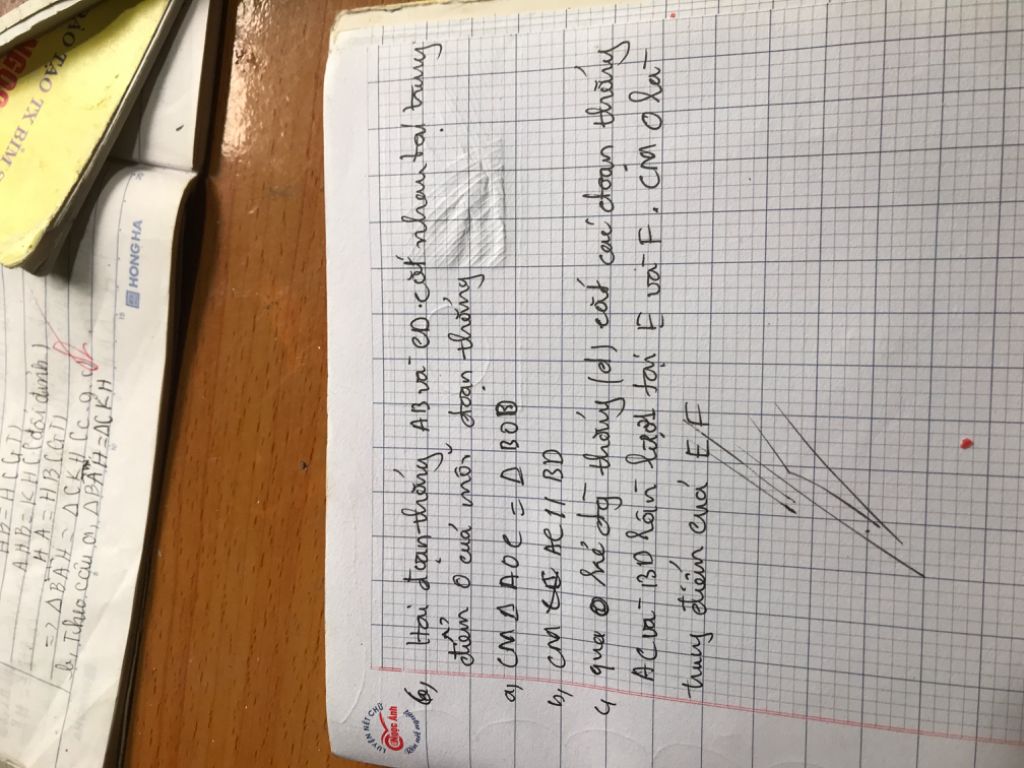 6, Hai đoạn thẳng AB và CD cắt nhau tại trung
điểm O của mỗi đoạn thẳng
a, CM Δ AOC = Δ BOD
b, CM AC // BD
c, qua O kẻ đg thẳng (d) cắt các đoạn thẳng
AC và BD lần lượt tại E và F. CM O là
trung điểm của EF
LUYỆN NÉT CHỮ
Ngọc Ánh
HB = HC (GT)
AHB = KHC (đối đỉnh)
HA = HB (GT)
=> Δ BAH = Δ CKH (c.g.c)
b, Theo câu a, Δ BAH = Δ CKH
HONG HA
ĐÀO TẠO TX BỈM
NGỌC